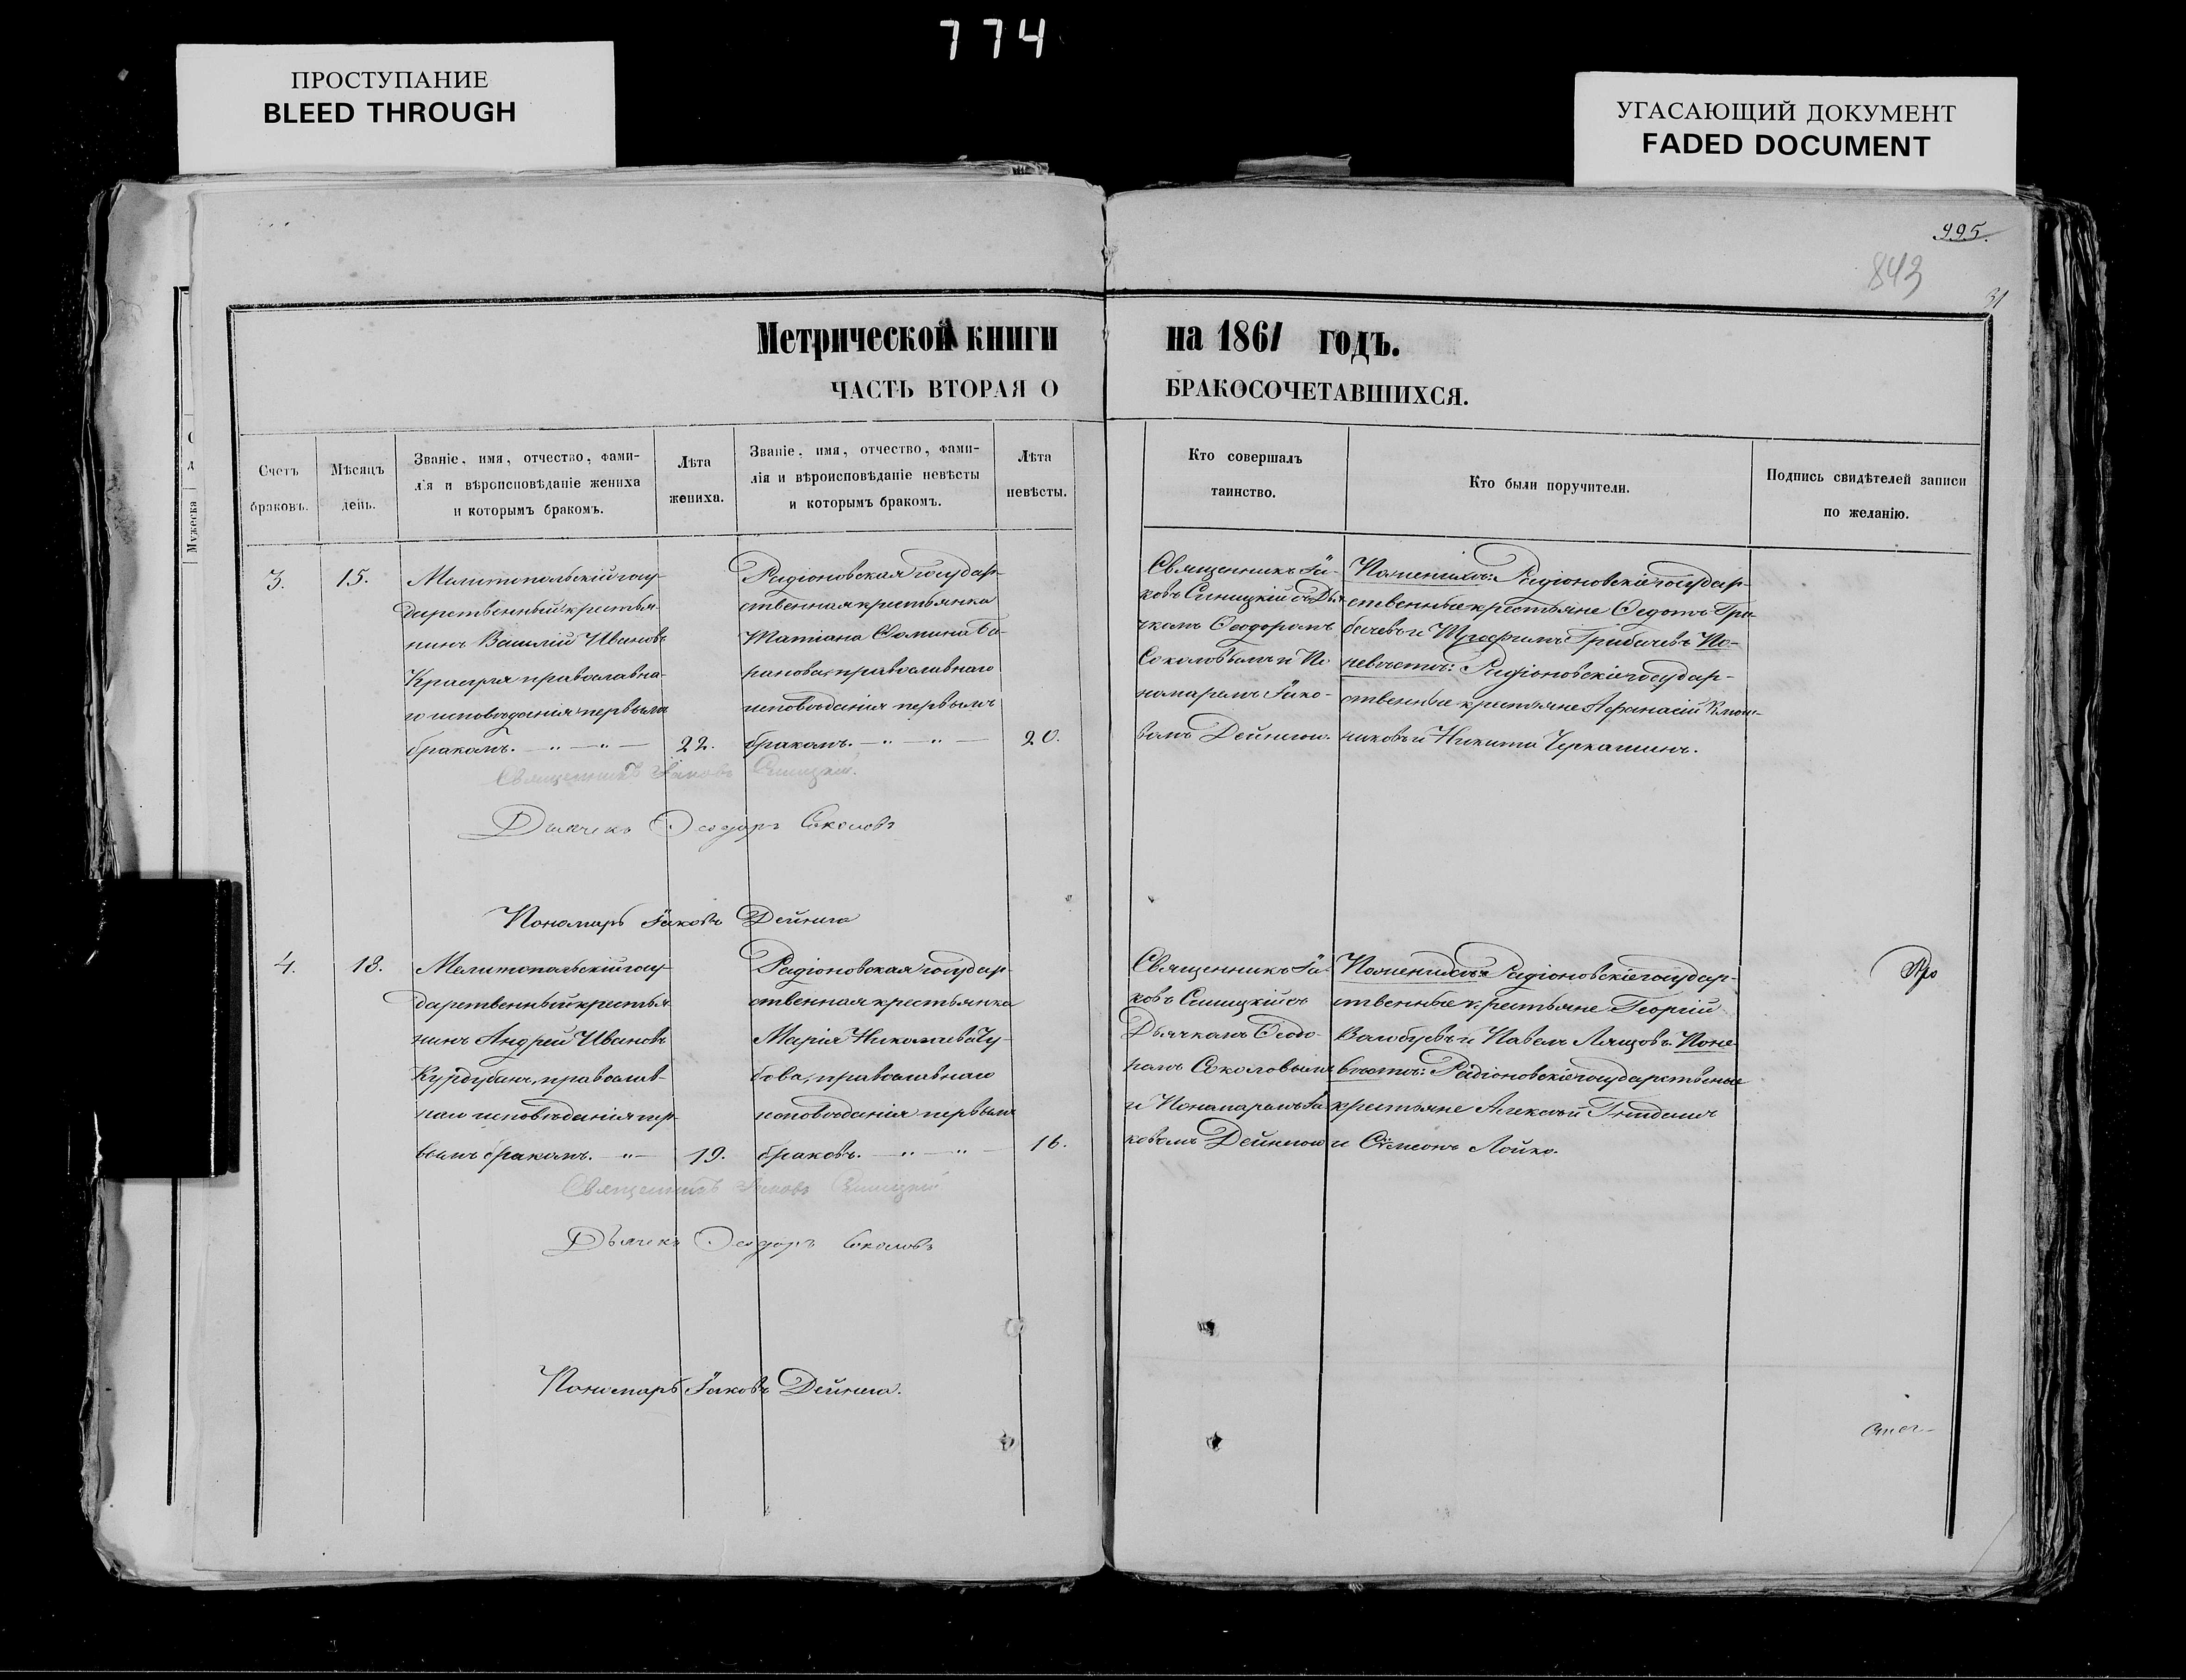 774
ПРОСТУПАНИЕ
BLEED THROUGH
УГАСАЮЩИЙ ДОКУМЕНТ
FADED DOCUMENT
995.
843
31
Метрической книги на 1861 годъ.
ЧАСТЬ ВТОРАЯ О БРАКОСОЧЕТАВШИХСЯ.
Счетъ
браковъ.
Мѣсяцъ
день.
Званіе, имя, отчество, фами-
лія и вѣроисповѣданіе жениха
и которымъ бракомъ.
Лѣта
жениха.
Званіе, имя, отчество, фами-
лія и вѣроисповѣданіе невѣсты
и которымъ бракомъ.
Лѣта
невѣсты.
Кто совершалъ
таинство.
Кто были поручители.
Подпись свидѣтелей записи
по желанію.
Мужеска
3.
15.
Мелитопольскій госу-
дарственный крестья-
нинъ Василій Ивановъ
православна-
го исповѣданія первымъ
бракомъ. — „ — „ —
22.
Радіоновская государ-
ственная крестьянка
Татіана Фомина Ба-
ранова православнаго
исповѣданія первымъ
бракомъ. — „ — „ —
20.
Священникъ Іа-
ковъ Синицкій съ Дья-
чкомъ Ѳеодоромъ
Соколовымъ и По-
номаремъ Іако-
вомъ Дейнегою.
По женихѣ: Радіоновскіе государ-
ственные крестьяне Ѳедотъ Гри-
бачевъ и Трофимъ Грибачевъ По-
невѣстѣ: Радіоновскіе государ-
ственные крестьяне Афанасій
и Никита Черкашинъ.
Священникъ Іаковъ Синицкій.
Дьячекъ Ѳеодоръ Соколовъ
Пономарь Іаковъ Дейнега
4.
18.
Мелитопольскій госу-
дарственный крестья-
нинъ Андрей Ивановъ
Курдубанъ, православ-
наго исповѣданія пер-
вымъ бракомъ. — „ —
19.
Радіоновская государ-
ственная крестьянка
Марія Николаева Чу-
бова, православнаго
исповѣданія первымъ
бракомъ. — „ — „ —
16.
Священникъ Іа-
ковъ Синицкій съ
Дьячкомъ Ѳеодо-
ромъ Соколовымъ
и Пономаремъ Іа-
ковомъ Дейнегою
По женихѣ: Радіоновскіе государ-
ственные крестьяне Георгій
Волобуевъ и Павелъ Лящовъ. По не-
вѣстѣ: Радіоновскіе государственные
крестьяне Алексѣй
и Симеонъ Лойко.
Священникъ Іаковъ Синицкій
Дьячекъ Ѳеодоръ Соколовъ
Пономарь Іаковъ Дейнега.